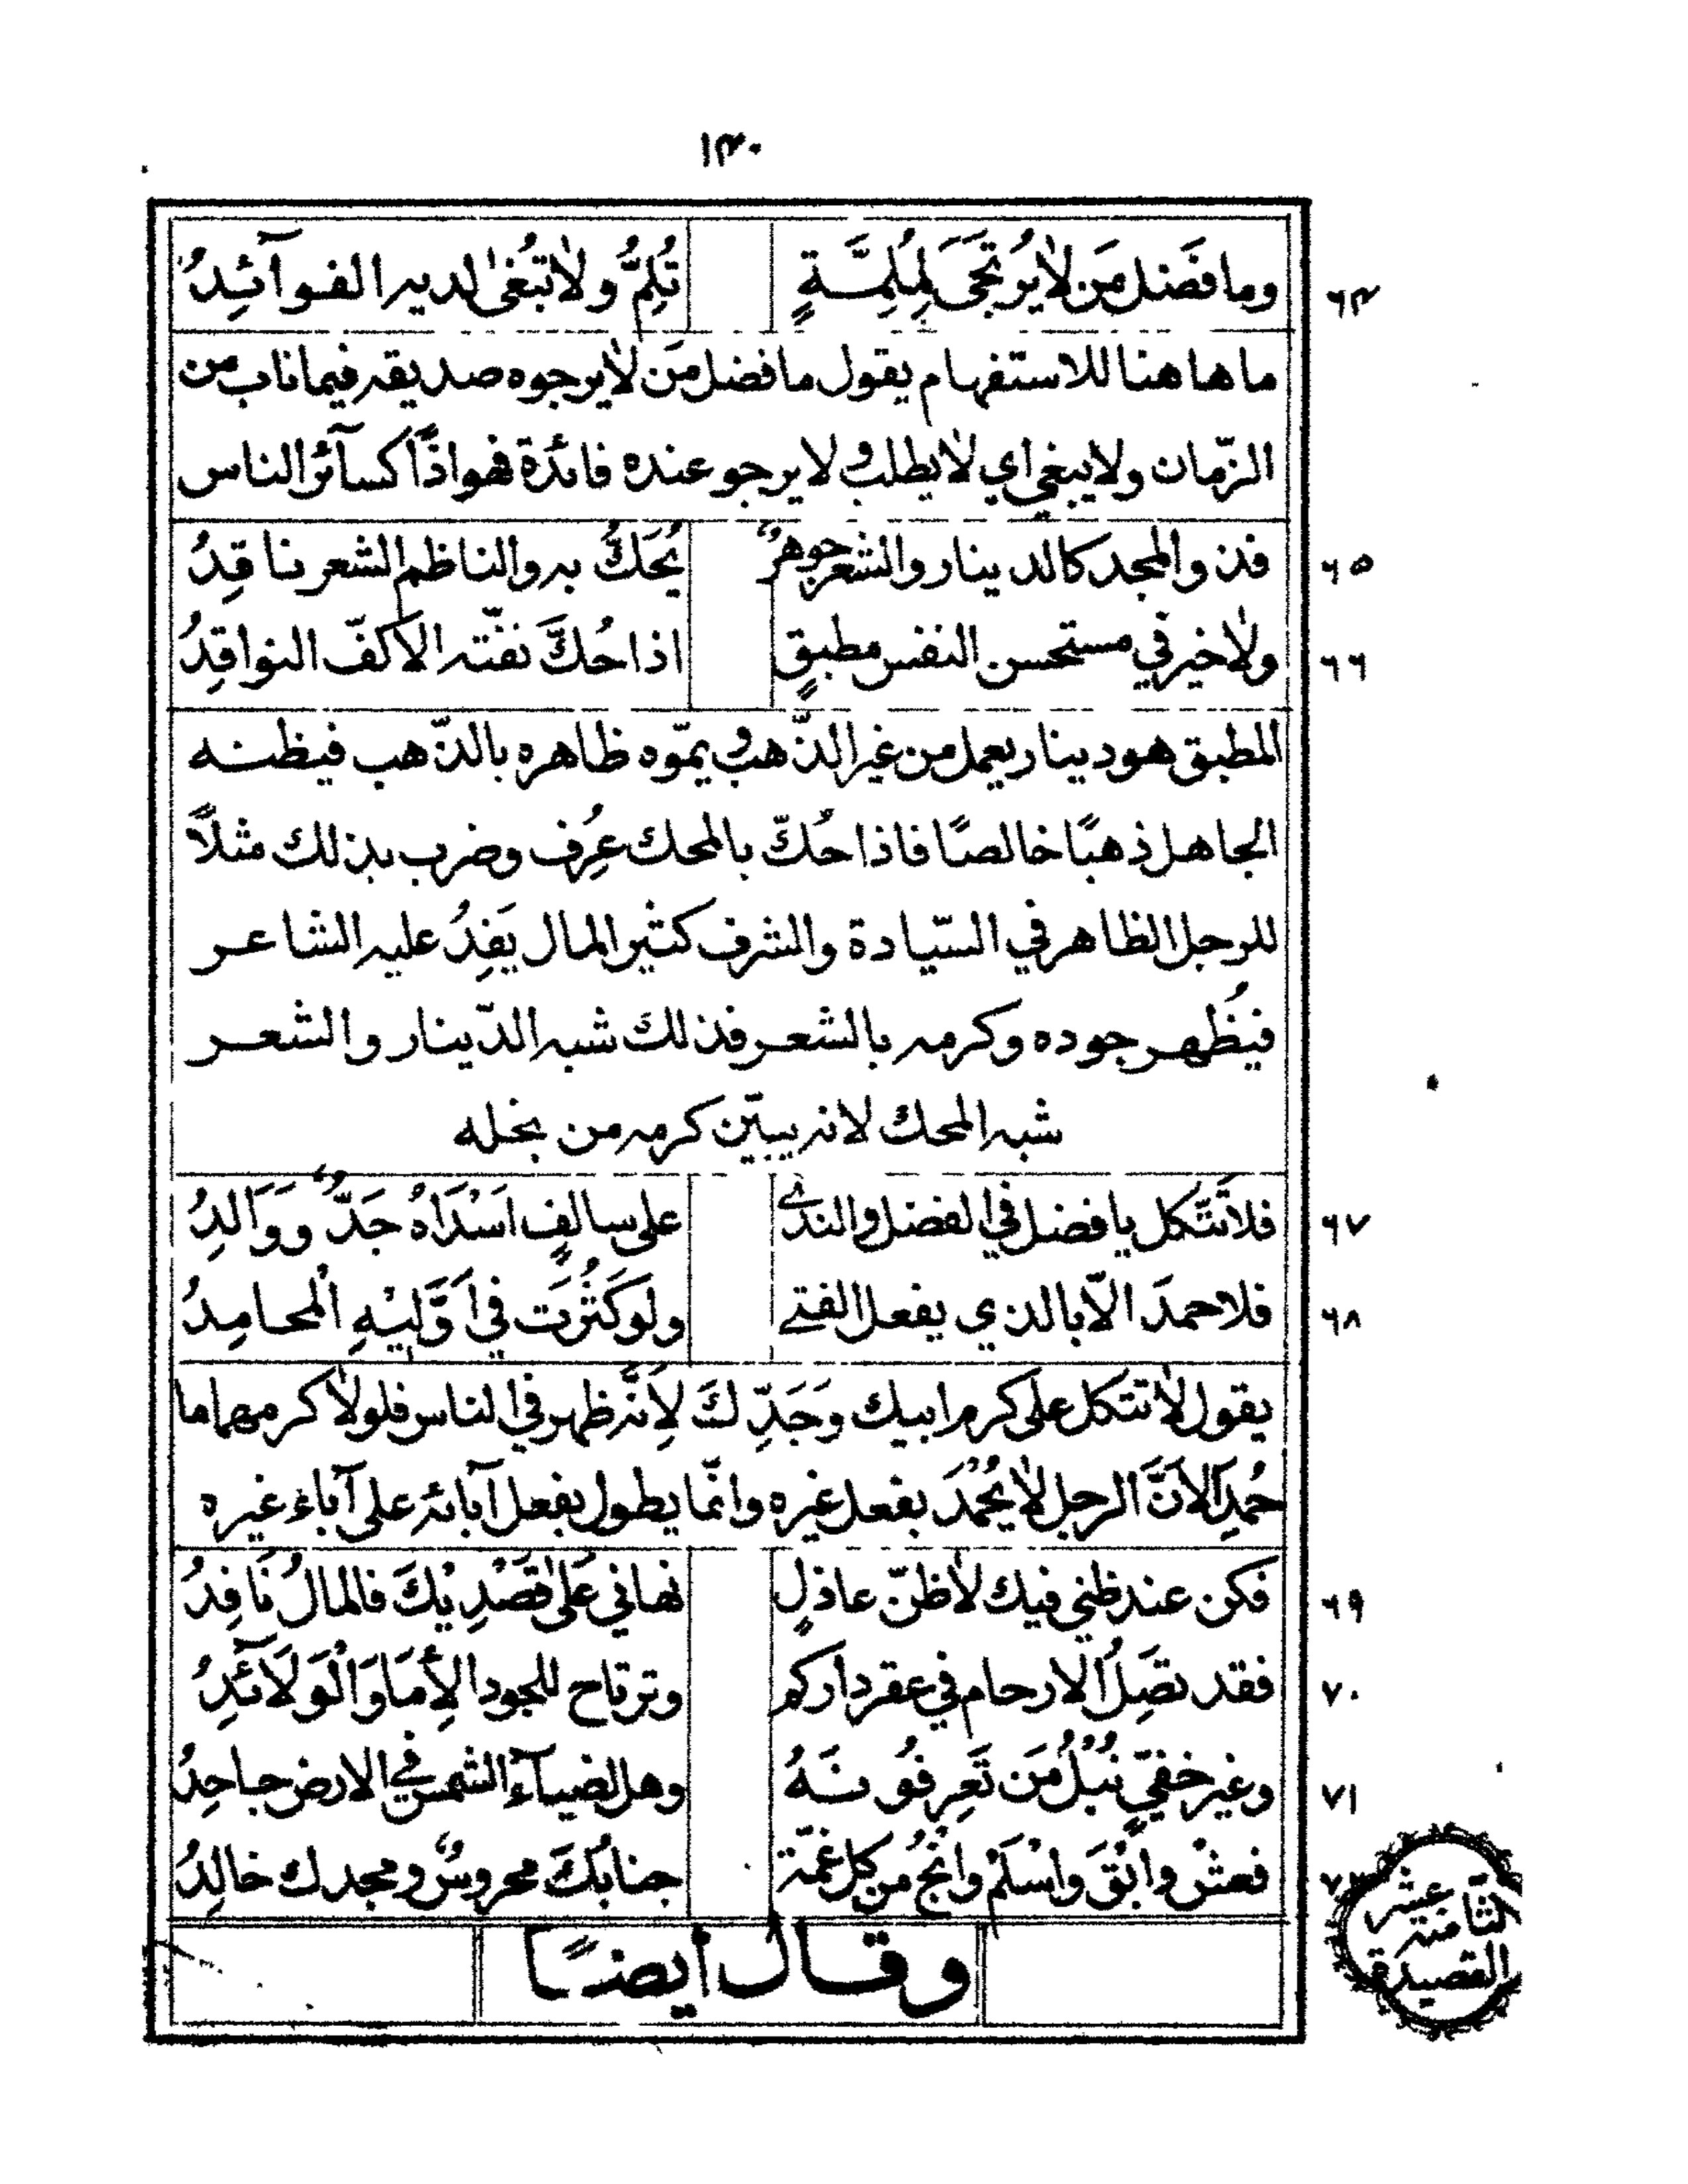 ١٤٠
٦٤ وما فَضل مَن لا يُرتَجَى لِمُلِمَّةٍ تُلِمُّ ولا تُبغٰى لديه الفوآئِدُ
ما هاهنا للاستفهام يقول ما فضل مَن لا يرجوه صديقه فيما ناب من
الزّمان ولا يبغي اي لا يطلب و لا يرجو عنده فائدة فهو اذًا كسآئر الناس
٦٥ فذو المجد كالدينار والشعر جوهرٌ يُحَكُّ به والناظم الشعر ناقِدُ
٦٦ ولا خير في مستحسن النفس مطبقٍ اذا حُكَّ نفّته الاكفّ النواقِدُ
المطبق هو دينار يعمل من غير الذّهب و يموّه ظاهره بالذّهب فيظنه
الجاهل ذهبًا خالصًا فاذا حُكّ بالمحك عُرِف وضرب بذلك مثلاً
للرجل الظاهر في السّيادة والشرف كثير المال يَفِدُ عليه الشاعر
فيُظهر جوده وكرمه بالشعر فذلك شبه الدّينار والشعر
شبه المحك لانه يبيّن كرمه من بخله
٦٧ فلا تتّكل يا فضل في الفضل والندى على سالفٍ اَسْدَاهُ جَدٌّ ووَالِدُ
٦٨ فلا حمدَ الاّ بالذي يفعل الفتى ولو كَثُرَت في اَوَّلِيْهِ المحامِدُ
يقول لا تتكل على كرم ابيك وَجَدِّكَ لِاَنَّه ظهر في الناس فلولا كرمهما ما
حُمِدَا لاَنَّ الرجل لا يُحْمَدُ بفعل غيره وانّما يطول بفعل آبائه على آباء غيره
٦٩ فكن عند ظني فيك لا ظنّ عاذلٍ نهاني عَلىٰ قَصْدِيْكَ فالمالُ نَافِدُ
٧٠ فقد تصَلُ الارحام في عقر داركم وترتاح للجود الاِمَا وَالْوَلَآئِدُ
٧١ وغير خفيٍّ نُبْلُ مَن تَعرِفُونَهُ وهل لضيآء الشمس في الارض جاحِدُ
٧٢ فعشْ وابْقَ واسْلَمْ وانْجُ من كل غمّة جنابُكَ محروسٌ ومجدك خالِدُ
وقال ايضًا
الثامنة عشر
القصيدة